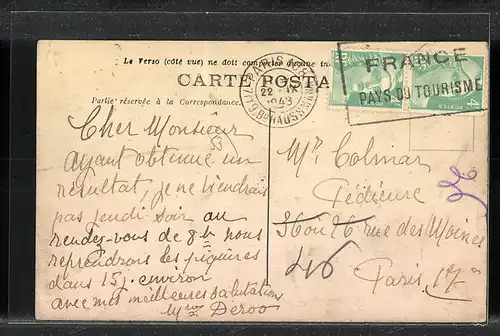 Le Verso (côté vue) ne doit comporter aucune in
CARTE POSTA
Partie réservée à la Correspondance.
PARIS
22 - IX
1948
FRANCE
PAYS DU TOURISME
4F
POSTES
Cher Monsieur
ayant obtenue un
résultat, je ne viendrais
pas jeudi soir au
rendez-vous de 8h nous
reprendrons les piqûres
dans 15 j. environ
avec mes meilleures salutations
Mme Deroo
53
Mr Colmar
Pédicure
36 ou 26 rue des Moines
46
Paris 17e